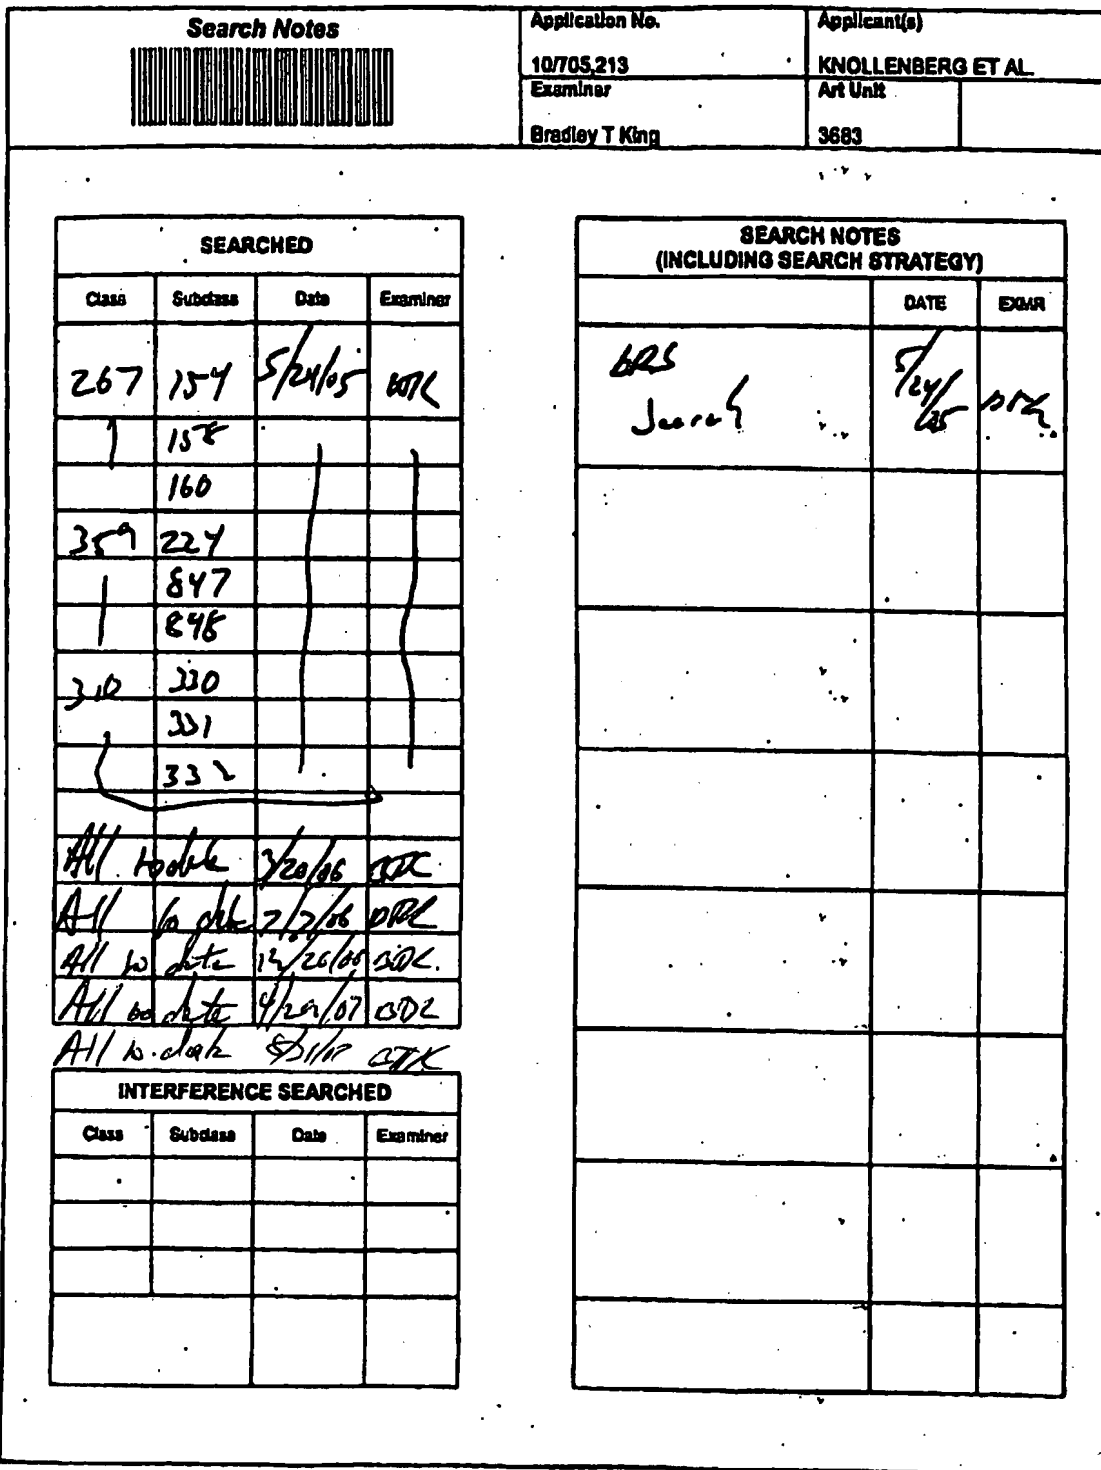 Search Notes
Application No.
10/705,213
Applicant(s)
KNOLLENBERG ET AL
Examiner
Bradley T King
Art Unit
3683
SEARCHED
Class Subclass Date Examiner
267 154 5/24/05 BTK
158
160
359 224
847
848
310 330
331
332
All to date 3/20/06 BTK
All to date 7/7/06 BTK
All to date 12/26/06 BTK
All to date BTK
All to date BTK
INTERFERENCE SEARCHED
Class Subclass Date Examiner
SEARCH NOTES
(INCLUDING SEARCH STRATEGY)
DATE EXMR
Search 5/24/05 BTK